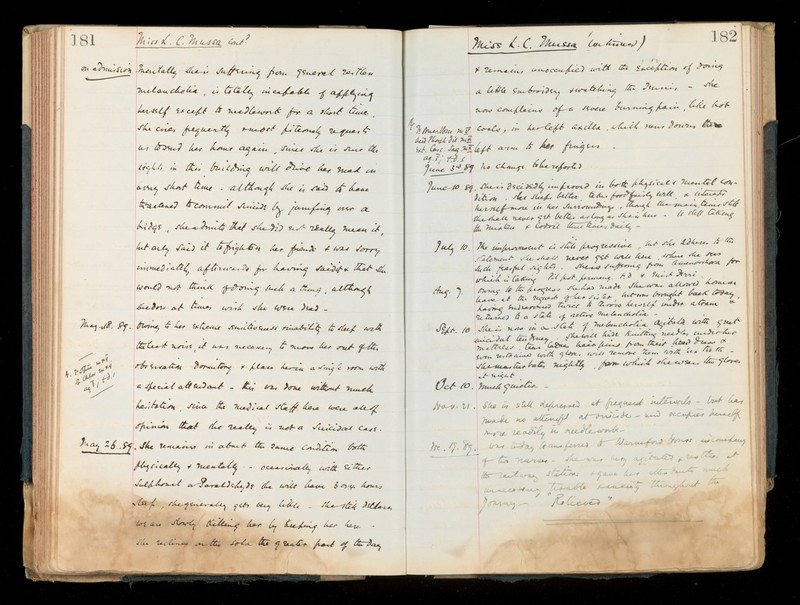 181
Miss L. C. Mussa cont.d
on admission
Mentally she is suffering from general restless
melancholia, is totally incapable of applying
herself except to needlework for a short time.
She cries frequently & most piteously requests
us to send her home again, since she is sure the
sights in this building will drive her mad in
a very short time - although she is said to have
threatened to commit suicide by jumping over a
bridge, she admits that she did not really mean it,
but only said it to frighten her friends & was sorry
immediately afterwards for having said it & that she
would not think of doing such a thing, although
she does at times wish she were dead -
May 18. 89. Owing to her extreme inability to sleep with
the least noise, it was necessary to move her out of the
observation Dormitory & place her in a single room with
a special attendant - this was done without much
hesitation, since the medical staff here were all of
opinion that she really is not a Suicidal case -
May 26. 89. She remains in about the same condition both
physically & mentally - occasionally with either
Sulphonal or Paraldehyde she will have 3 or 4 hours
sleep, she generally gets very little - She still declares
we are slowly killing her by keeping her here -
She reclines on the sofa the greater part of the day
182
Miss L. C. Mussa (continued)
& remains unoccupied with the exception of doing
a little embroidery & watching the Tennis - She
now complains of a severe burning pain, like hot
coals, in her left axilla, which runs down the
left arm to her fingers -
June 3rd 89 No change to be reported
June 10. 89. She is decidedly improved in both physical & mental con-
dition. She sleeps better, takes food fairly well, & interests
herself more in her surroundings, though she maintains still
she shall never get better as long as she is here - Is still taking
the mixture & three times daily -
July 10. The improvement is still progressive, but she adheres to the
statement she shall never get well here, where she sees
such fearful sights. She is suffering from Amenorrhoea, for
which is taking
Aug. 7. Owing to the progress she has made she was allowed home on
leave at the request of her sister but was brought back today,
having endeavoured twice to throw herself under a train &
returned to a state of active melancholia -
Sept. 10. She is now in a state of melancholia agitata with great
suicidal tendency. She will hide knitting needles under her
mattress, hair pins from their head dress &
even restrained with gloves will remove them with her teeth -
She masturbates nightly, for which she wears the gloves
at night
Oct 10. Much quieter -
Nov. 21. She is still depressed at frequent intervals - but has
made no attempt at suicide - and occupies herself
more readily in needlework -
Dec. 17. 89. Was today transferred to Warneford House in company
of two nurses - She was very agitated & restless at
the railway station & gave her attendants much
unnecessary trouble & anxiety throughout the
Journey - "Relieved"